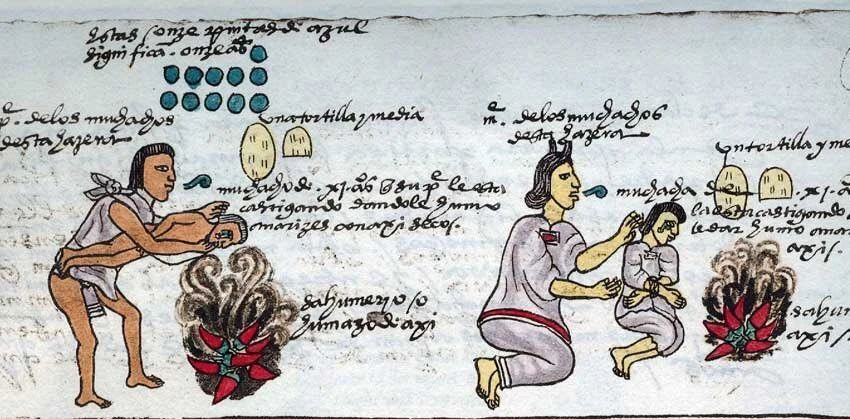 estas onze pintas de azul
significan onze aºs
pº. de los muchachos
desta hazera
una tortilla y media
muchacho de .xi. aºs q̃ su pº le esta
castigando dandole humo
a narizes con axi secos.
dahumerio so
humazo de axi
mº. de los muchachos
desta hazera
un tortilla y me
muchacha de .xi. aº
la esta castigando
le dar humo
axis.
dahum
axi